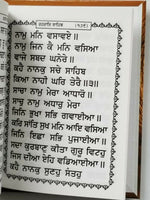 ਨਾਮੁ ਮਨਿ ਵਸਾਵਏ॥
ਨਾਮੁ ਜਿਨ ਕੈ ਮਨਿ ਵਸਿਆ
ਵਾਜੇ ਸਬਦ ਘਨੇਰੇ॥
ਕਹੈ ਨਾਨਕੁ ਸਚੇ ਸਾਹਿਬ
ਕਿਆ ਨਾਹੀ ਘਰਿ ਤੇਰੈ॥੩॥
ਸਾਚਾ ਨਾਮੁ ਮੇਰਾ ਆਧਾਰੋ॥
ਸਾਚੁ ਨਾਮੁ ਅਧਾਰੁ ਮੇਰਾ
ਜਿਨਿ ਭੁਖਾ ਸਭਿ ਗਵਾਈਆ॥
ਕਰਿ ਸਾਂਤਿ ਸੁਖ ਮਨਿ ਆਇ ਵਸਿਆ
ਜਿਨਿ ਇਛਾ ਸਭਿ ਪੁਜਾਈਆ॥
ਸਦਾ ਕੁਰਬਾਣੁ ਕੀਤਾ ਗੁਰੂ ਵਿਟਹੁ
ਜਿਸ ਦੀਆ ਏਹਿ ਵਡਿਆਈਆ॥
ਕਹੈ ਨਾਨਕੁ ਸੁਣਹੁ ਸੰਤਹੁ